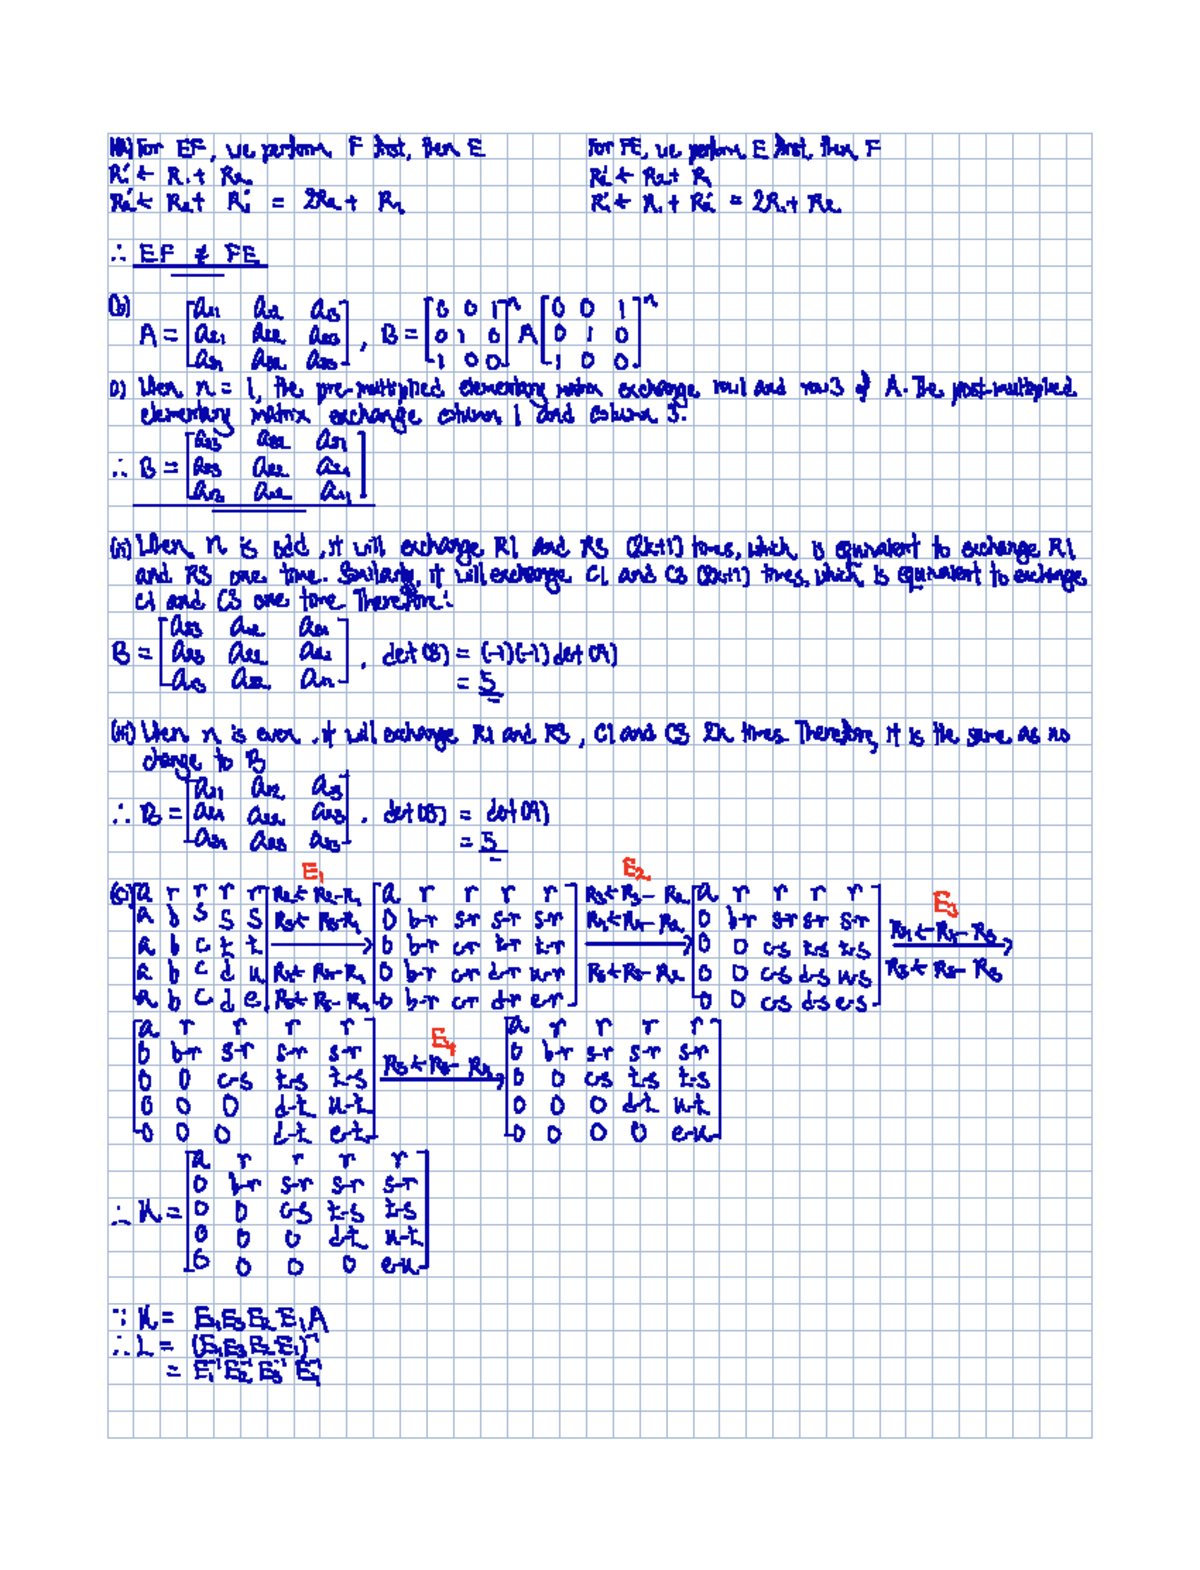 For EF, we perform F first, then E
For FE, we perform E first, then F
R₁' ← R₁ + R₂
R₂' ← R₂ + R₁
R₂' ← R₂ + R₁' = 2R₂ + R₁
R₁' ← R₁ + R₂' = 2R₁ + R₂
∴ EF ≠ FE
(b)
A = [a₁₁ a₁₂ a₁₃; a₂₁ a₂₂ a₂₃; a₃₁ a₃₂ a₃₃], B = [0 0 1; 0 1 0; 1 0 0]ⁿ A [0 0 1; 0 1 0; 1 0 0]ⁿ
(i) When n = 1, the pre-multiplied elementary matrix exchange row1 and row3 of A. The post-multiplied
elementary matrix exchange column 1 and column 3.
∴ B =
(ii) When n is odd, it will exchange R1 and R3 (2k+1) times, which is equivalent to exchange R1
and R3 one time. Similarly, it will exchange C1 and C3 (2k+1) times, which is equivalent to exchange
C1 and C3 one time. Therefore:
B = , det(B) = (-1)(-1)det(A)
= 5
(iii) When n is even, it will exchange R1 and R3, C1 and C3 2k times. Therefore, it is the same as no
change to B
∴ B = , det(B) = det(A)
= 5
E₁
E₂
E₃
(c) [a r r r r; a b s s s; a b c t t; a b c d u; a b c d e]
R₂ ← R₂ - R₁
R₃ ← R₃ - R₁
R₄ ← R₄ - R₁
R₅ ← R₅ - R₁
[a r r r r; 0 b-r s-r s-r s-r; 0 b-r c-r t-r t-r; 0 b-r c-r d-r u-r; 0 b-r c-r d-r e-r]
R₃ ← R₃ - R₂
R₄ ← R₄ - R₂
R₅ ← R₅ - R₂
[a r r r r; 0 b-r s-r s-r s-r; 0 0 c-s t-s t-s; 0 0 c-s d-s u-s; 0 0 c-s d-s e-s]
R₄ ← R₄ - R₃
R₅ ← R₅ - R₃
[a r r r r; 0 b-r s-r s-r s-r; 0 0 c-s t-s t-s; 0 0 0 d-t u-t; 0 0 0 d-t e-t]
E₄
R₅ ← R₅ - R₄
[a r r r r; 0 b-r s-r s-r s-r; 0 0 c-s t-s t-s; 0 0 0 d-t u-t; 0 0 0 0 e-u]
∴ U = [a r r r r; 0 b-r s-r s-r s-r; 0 0 c-s t-s t-s; 0 0 0 d-t u-t; 0 0 0 0 e-u]
∵ U = E₄E₃E₂E₁A
∴ L = (E₄E₃E₂E₁)⁻¹
= E₁⁻¹E₂⁻¹E₃⁻¹E₄⁻¹